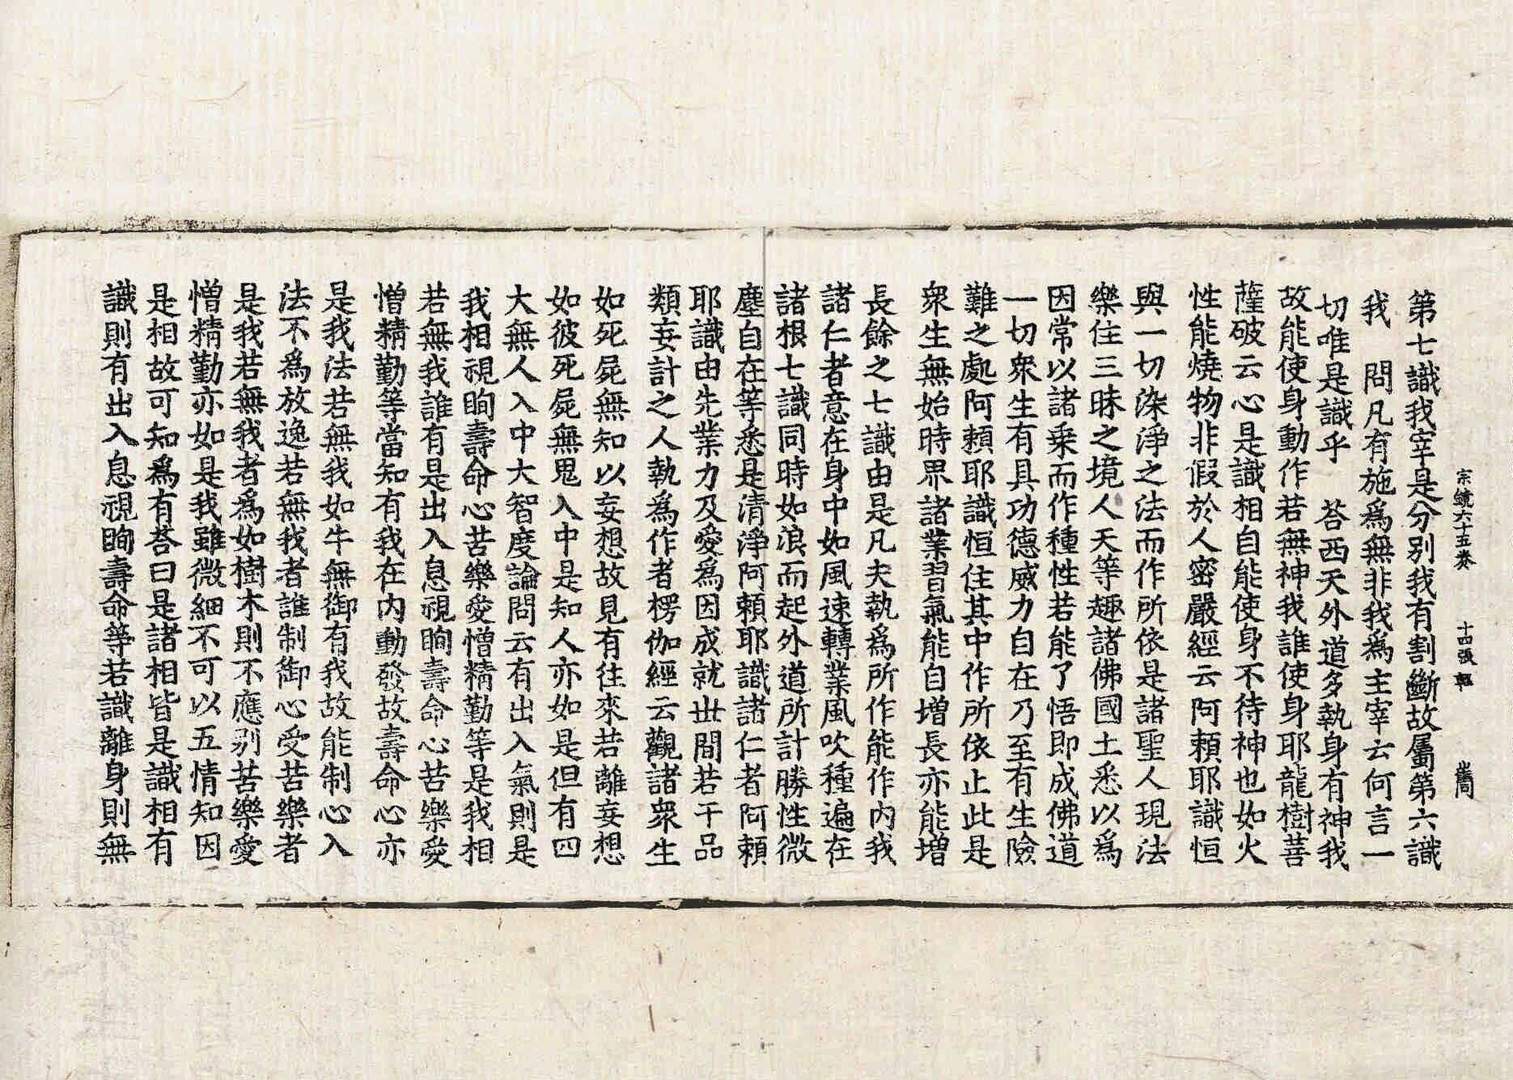 宗鏡六十五卷　十四張　輕
第七識我宰是分別我有割斷故屬第六識
我　問凡有施爲無非我爲主宰云何言一
切唯是識乎　荅西天外道多執身有神我
故能使身動作若無神我誰使身耶龍樹菩
薩破云心是識相自能使身不待神也如火
性能燒物非假於人密嚴經云阿賴耶識恒
與一切染淨之法而作所依是諸聖人現法
樂住三昧之境人天等趣諸佛國土悉以爲
因常以諸乘而作種性若能了悟即成佛道
一切衆生有具功德威力自在乃至有生險
難之處阿賴耶識恒住其中作所依止此是
衆生無始時界諸業習氣能自增長亦能增
長餘之七識由是凡夫執爲所作能作内我
諸仁者意在身中如風速轉業風吹種遍在
諸根七識同時如浪而起外道所計勝性微
塵自在等悉是清淨阿賴耶識諸仁者阿賴
耶識由先業力及愛爲因成就世間若干品
類妄計之人執爲作者楞伽經云觀諸衆生
如死屍無知以妄想故見有往來若離妄想
如彼死屍無鬼入中是知人亦如是但有四
大無人入中大智度論問云有出入氣則是
我相視眴壽命心苦樂愛憎精勤等是我相
若無我誰有是出入息視眴壽命心苦樂愛
憎精勤等當知有我在内動發故壽命心亦
是我法若無我如牛無御有我故能制心入
法不爲放逸若無我者誰制御心受苦樂者
是我若無我者爲如樹木則不應別苦樂愛
憎精勤亦如是我雖微細不可以五情知因
是相故可知爲有荅曰是諸相皆是識相有
識則有出入息視眴壽命等若識離身則無